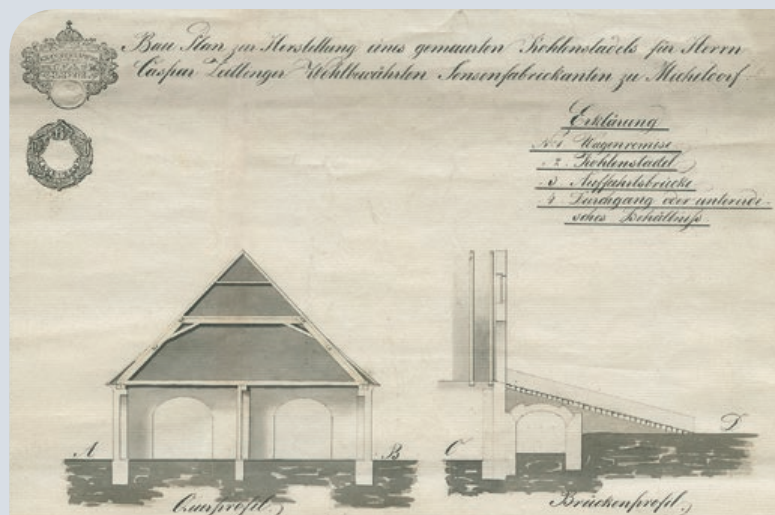 Bau Plan zur Herstellung eines gemauerten Kohlenstadels für Herrn
Caspar Zeitlinger Wohlbewährten Sensenfabrickanten zu Micheldorf
Erklärung
No 1 Wagenremise
„ 2 Kohlenstadel
„ 3 Auffahrtsbrücke
„ 4 Durchgang oder unterirdi-
sches Behältniß
A B C D
Querprofil.
Brückenprofil.